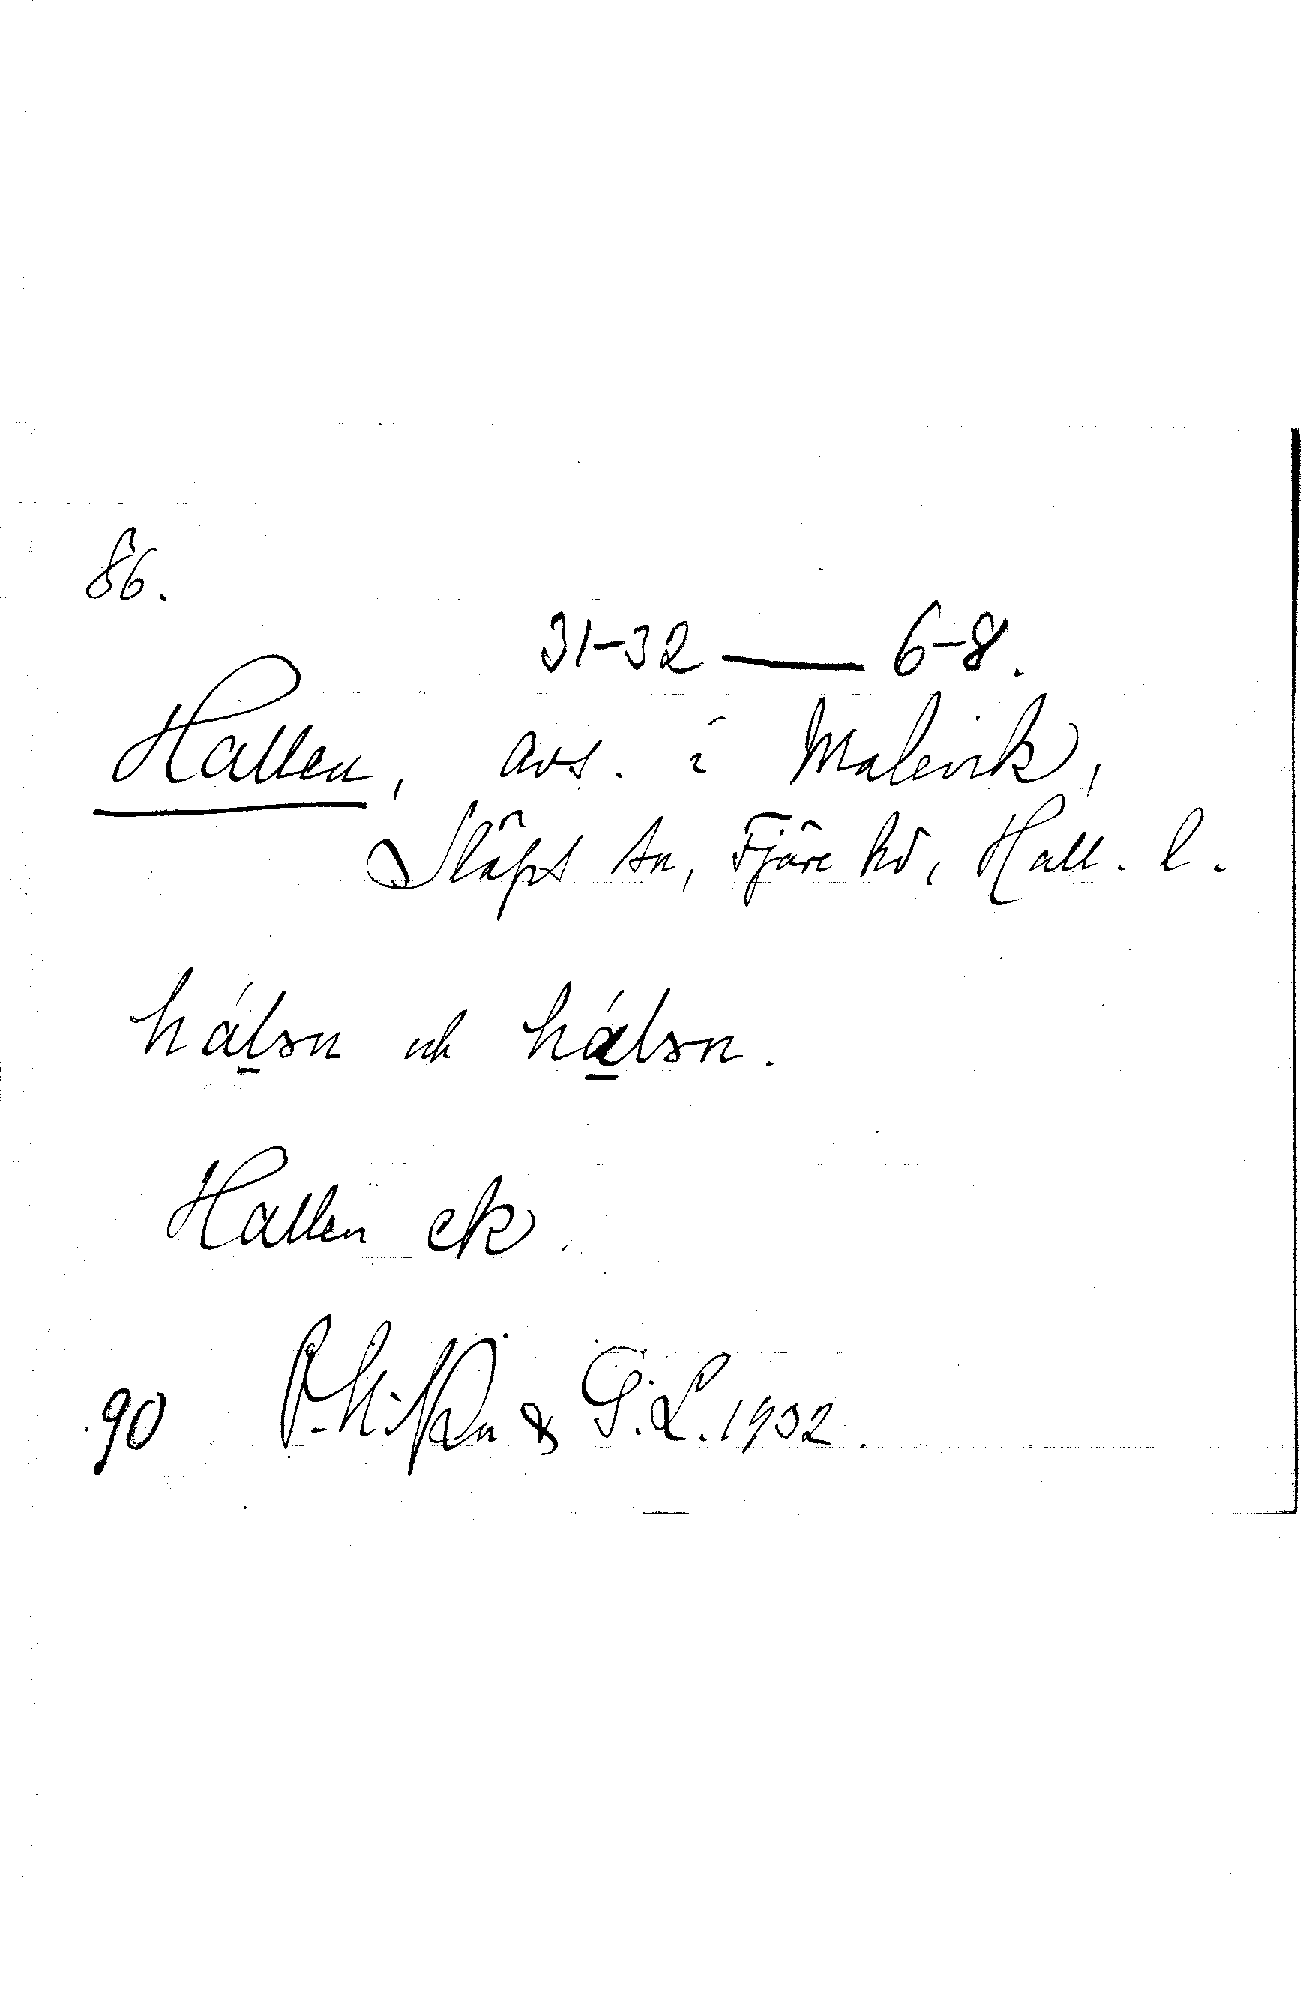 86.
31-32 — 6-8.
Hallen, avs. i Malevik,
Släps sn, Fjäre hd, Hall. l.
hálsn och hálsn.
Hallen ek.
90 & G.L. 1932.